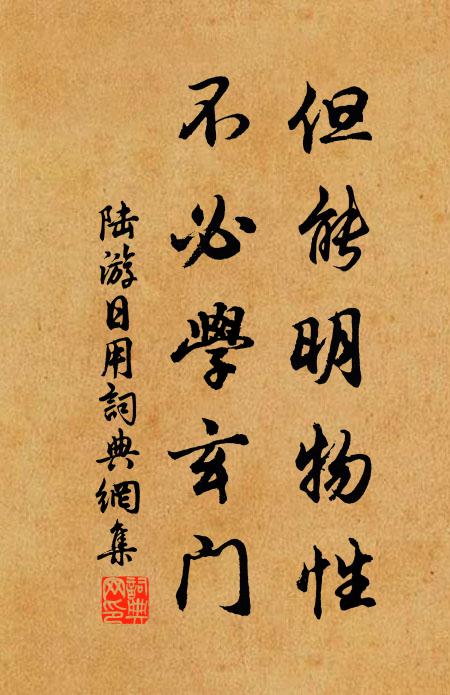 但能明物性
不必學玄門
陆游日用詞典網集
詞典
网印